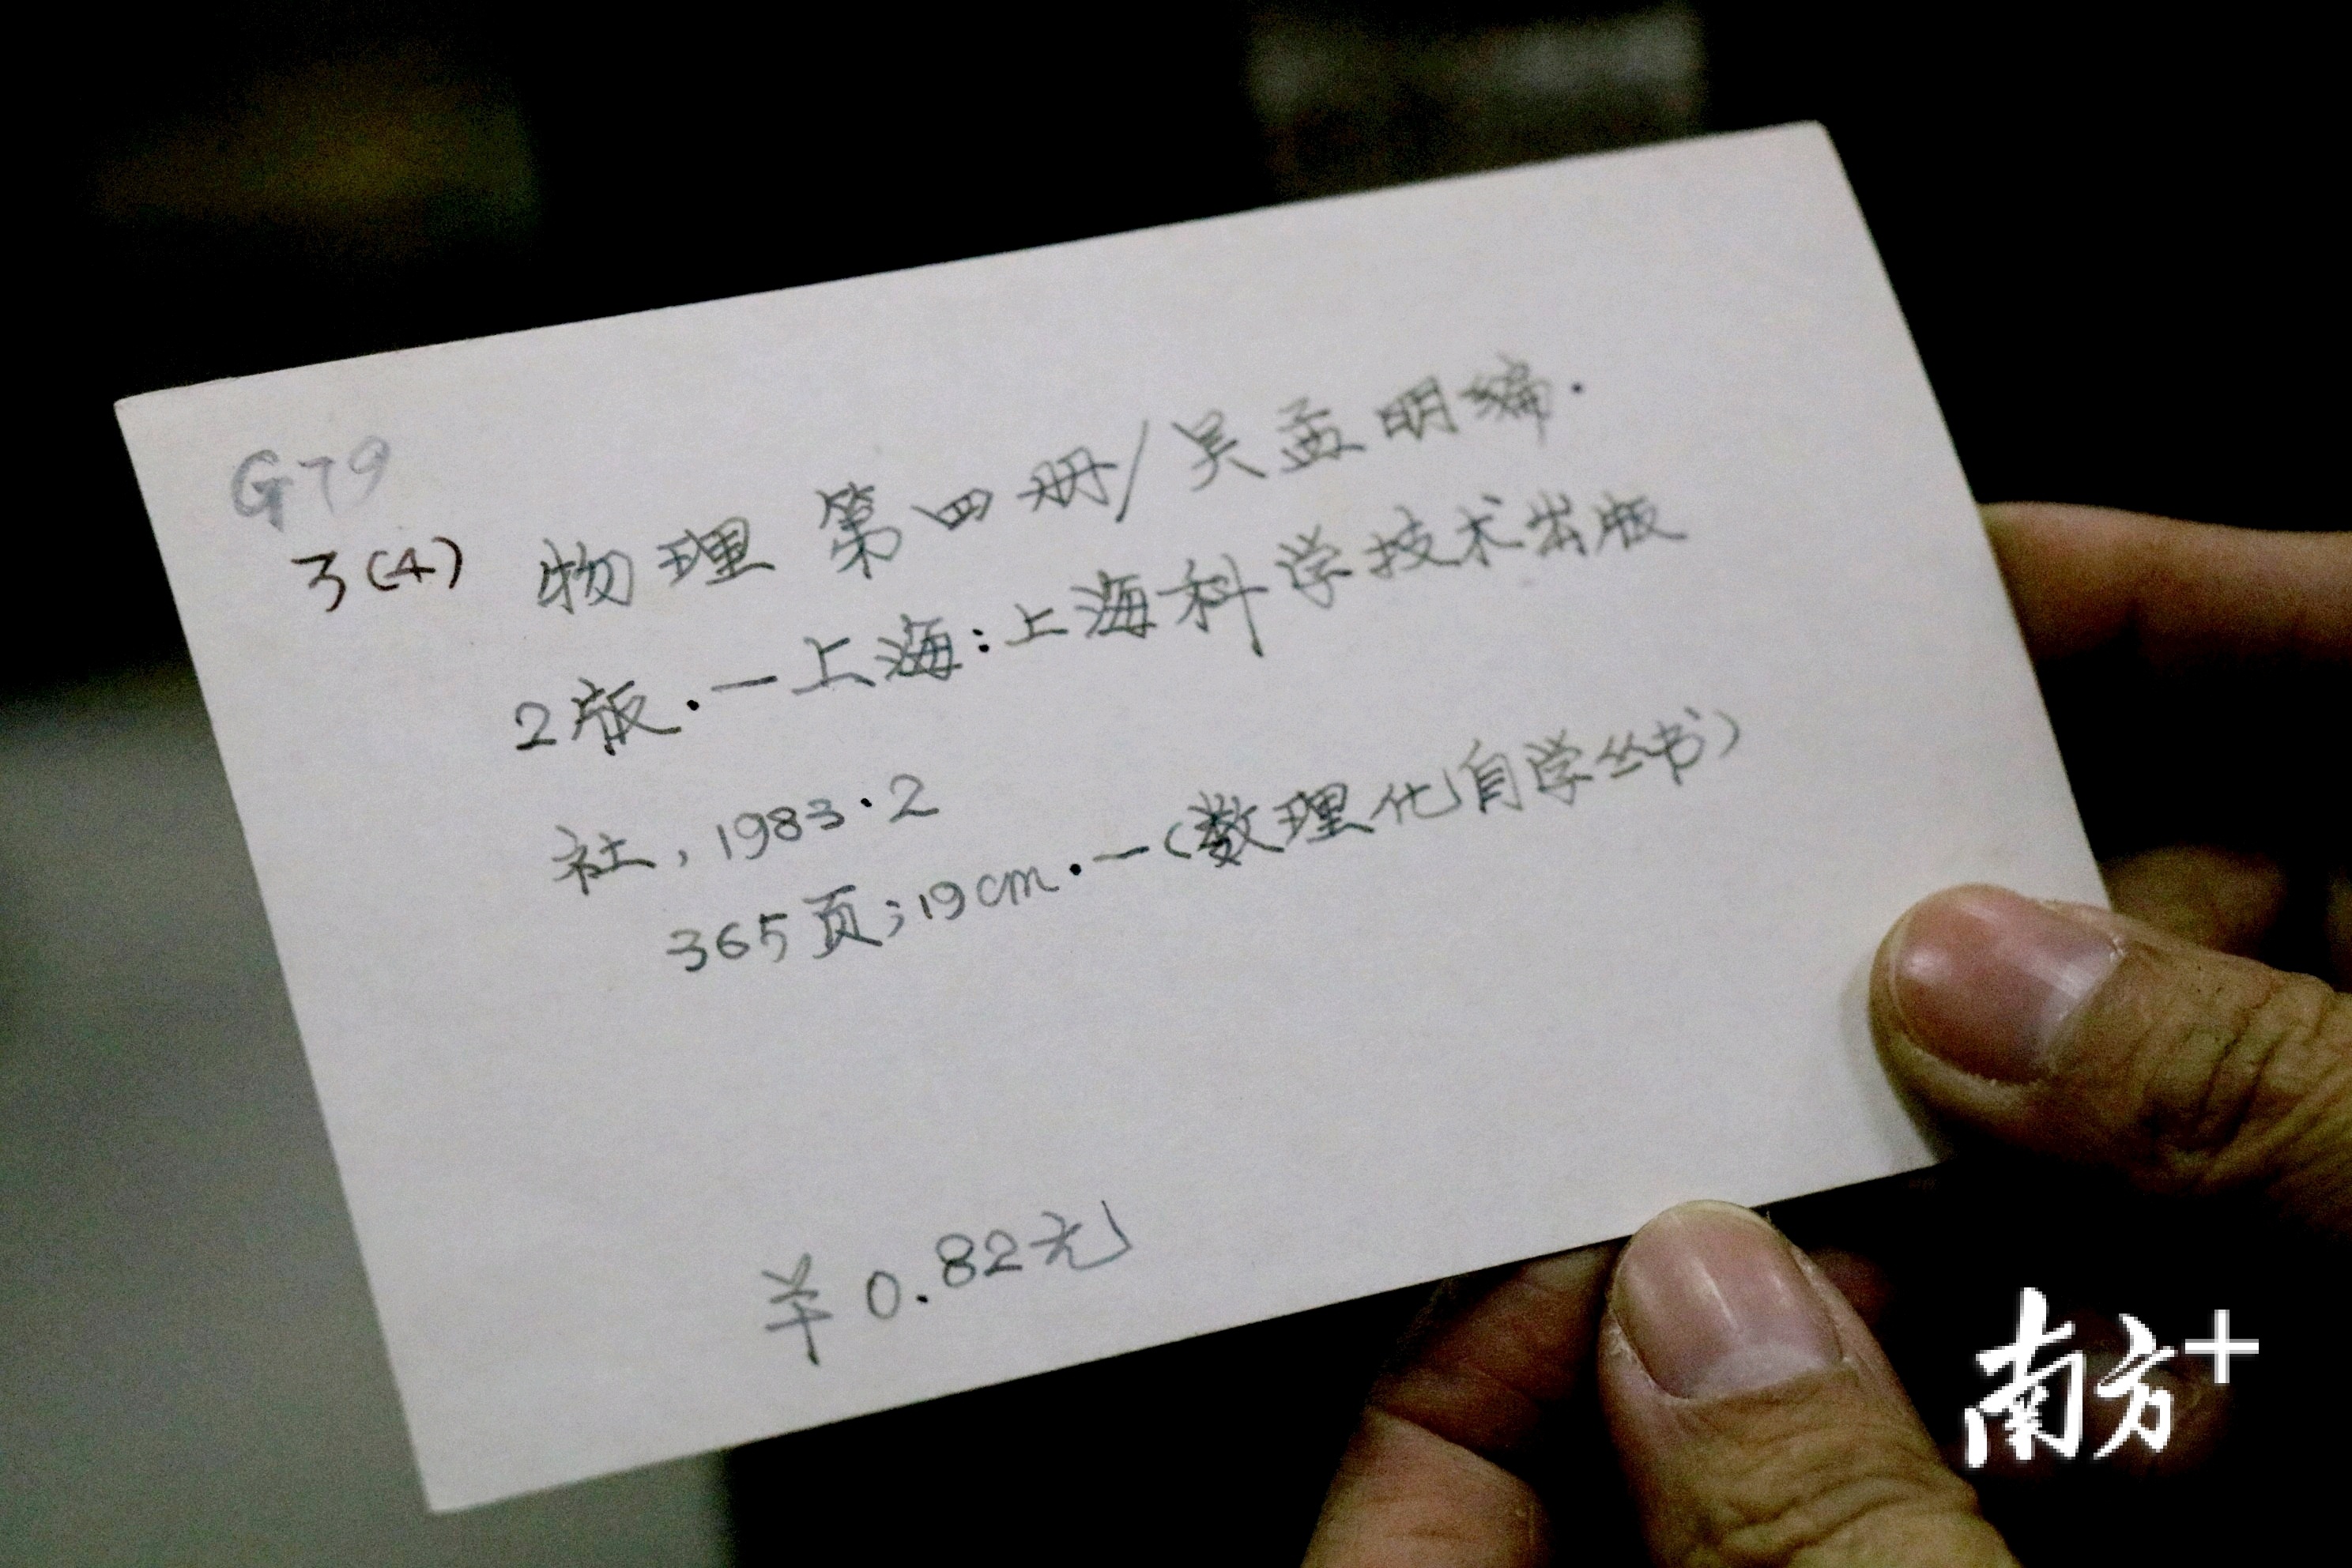 G79
3(4) 物理 第四册/吴孟明编.
2版.—上海:上海科学技术出版
社, 1983.2
365页;19cm.—(数理化自学丛书)
羊 0.82元
南方+